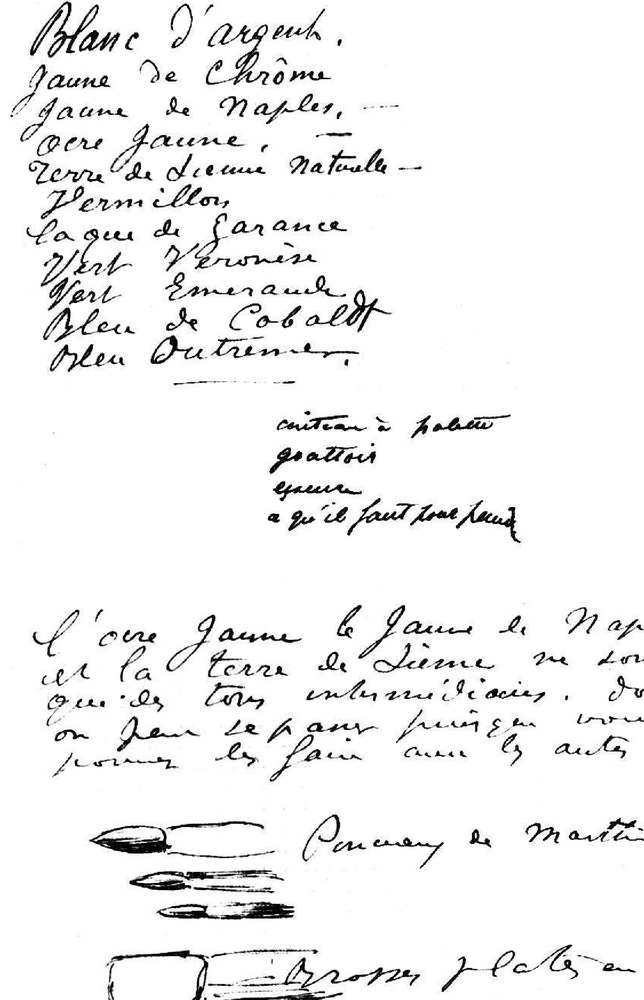 Blanc d'argent.
Jaune de Chrôme
Jaune de Naples. —
Ocre Jaune. —
Terre de Sienne Naturelle —
Vermillon
laque de Garance
Vert Véronèse
Vert Emeraude
Bleu de Cobaldt
Bleu Outremer.
couteau à palette
grattoir
essence
ce qu'il faut pour peindre
l'ocre Jaune le Jaune de Nap
et la terre de Sienne ne son
que des tons intermédiaires. do
on peut se passer puisque vou
pouvez les faire avec les autres
Pinceaux de Martt
Brosses plates en